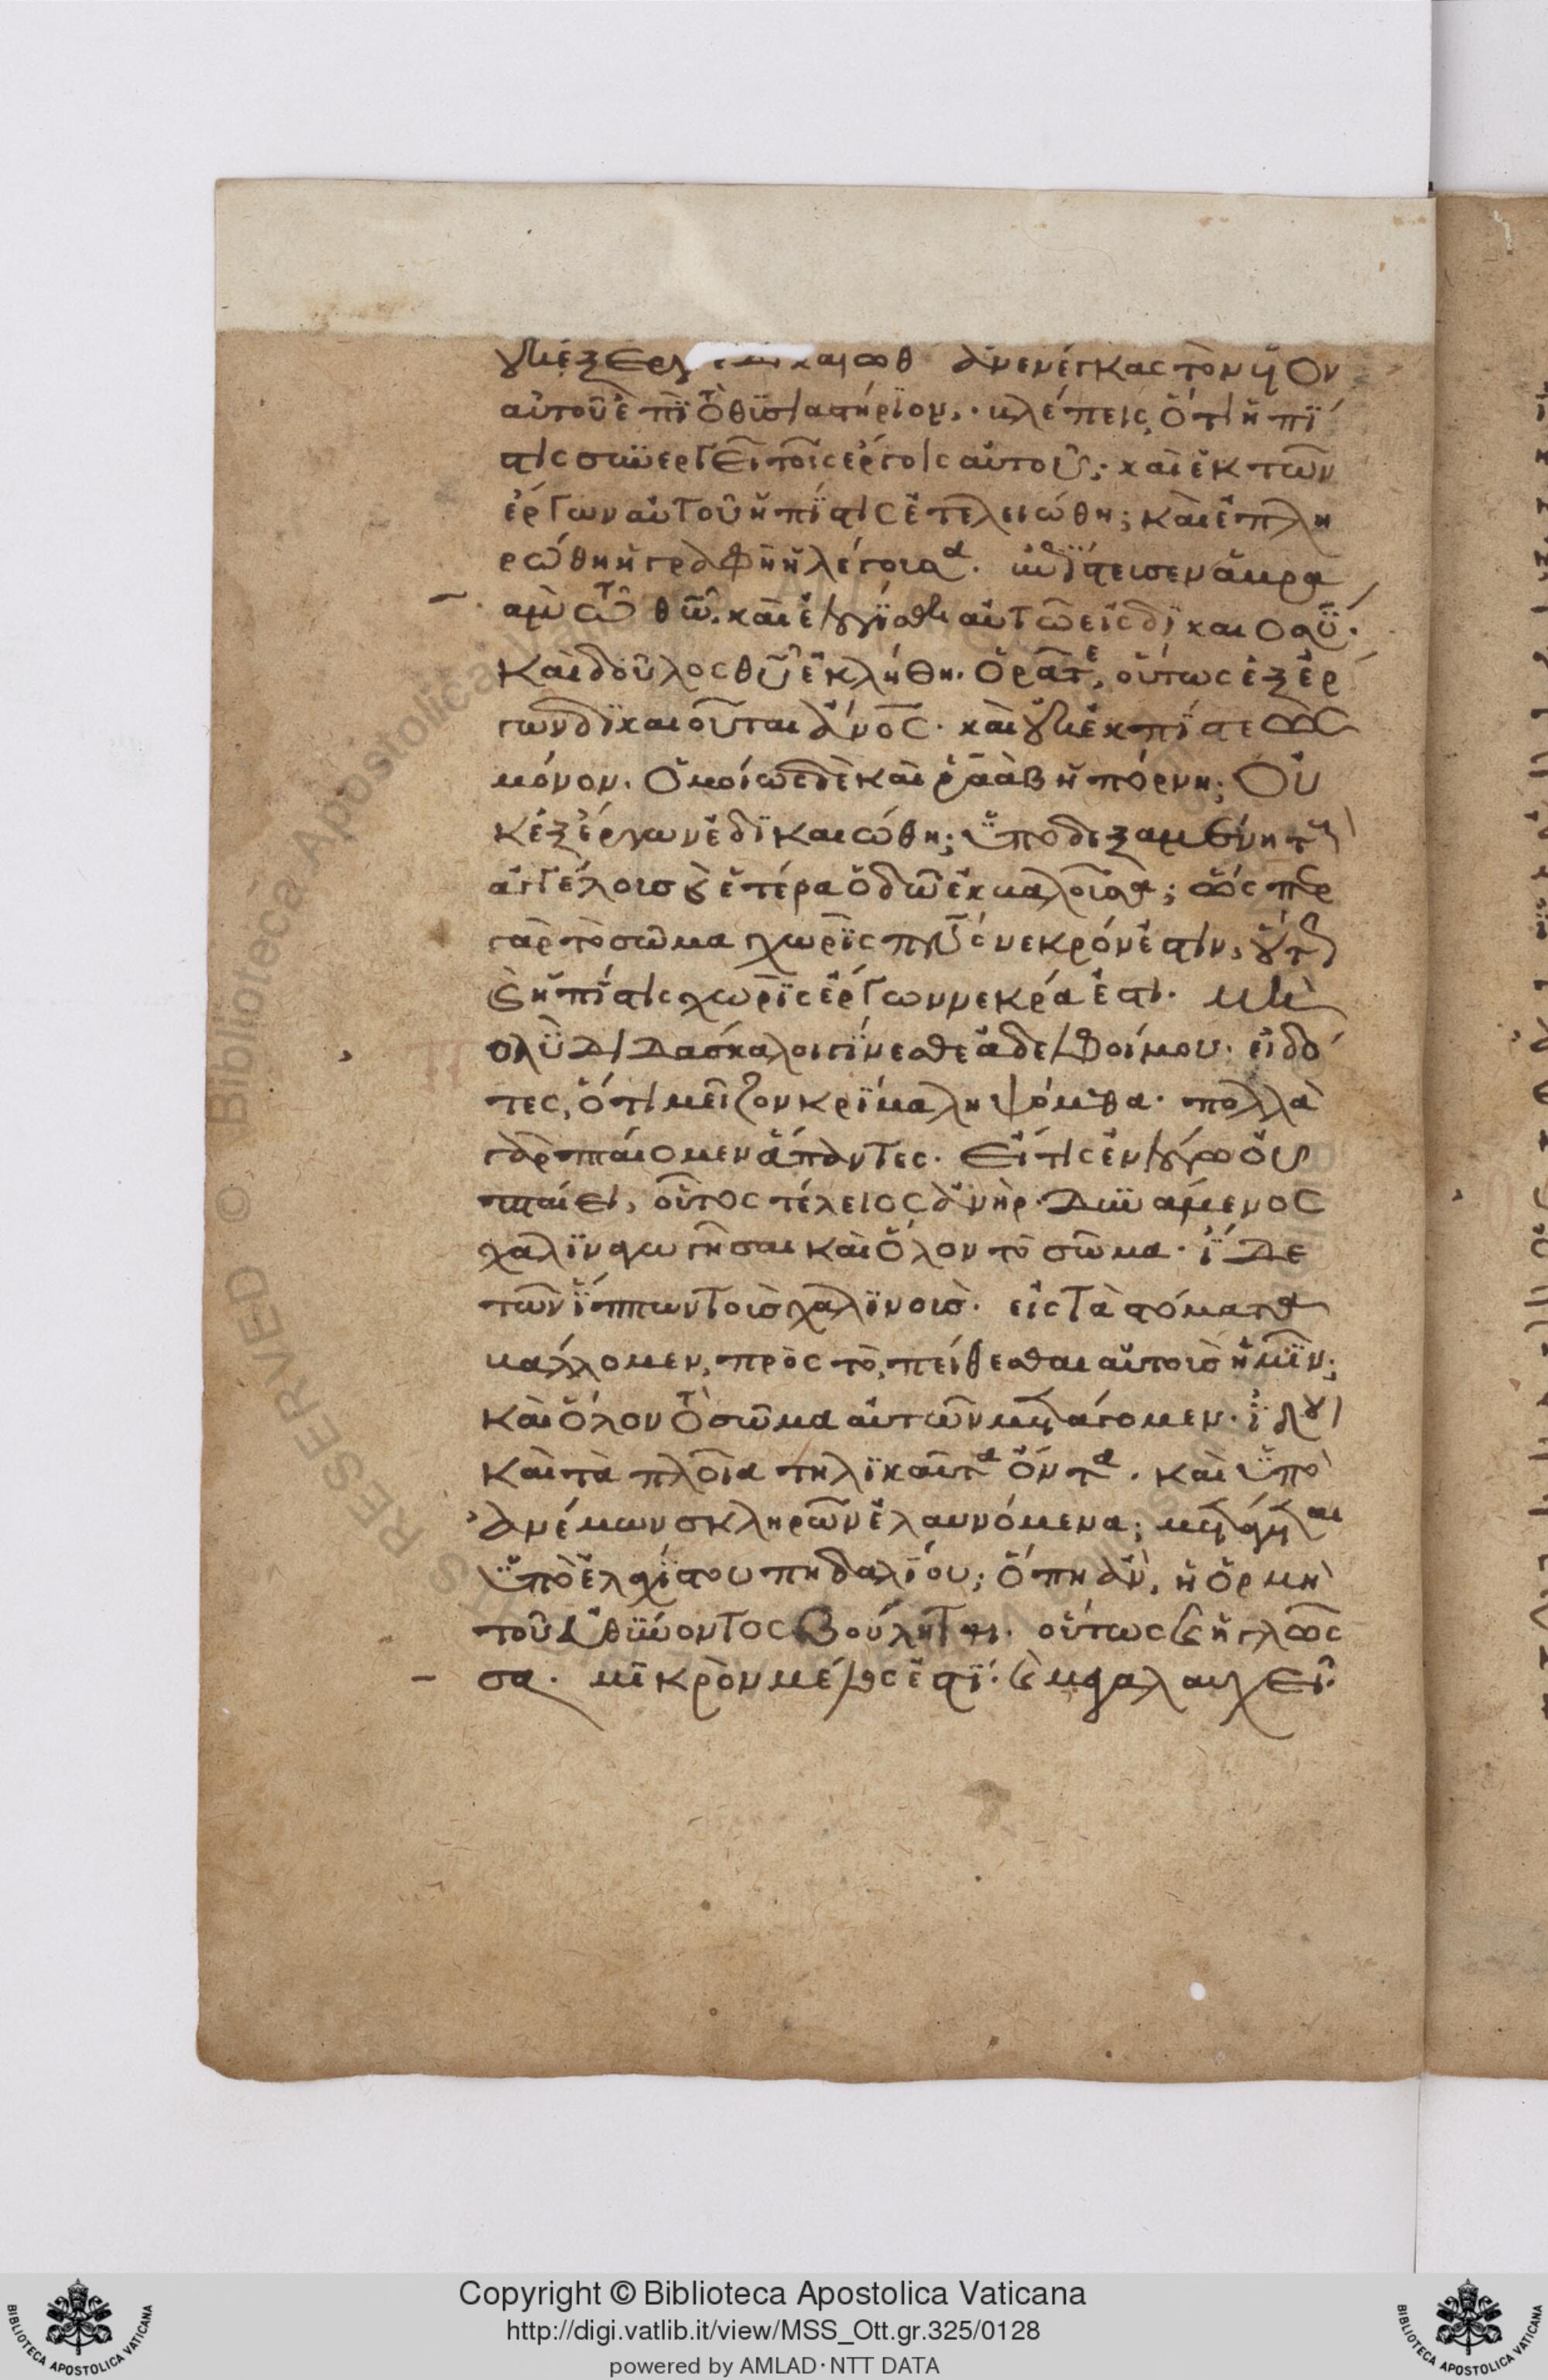 οὐκ ἐξ ἔργ ἐδικαιώθ ἀνενέγκας τὸν υἱὸν
αὐτοῦ ἐπῒ τὸ θϋσιαστήρϊον· βλέπεις, ὅτι ἡ πί
στις συνεργεῖ τοῖς ἔργοις αὐτοῦ; καὶ ἐκ τῶν
ἔργων αὐτοῦ ἡ πίστις ἐτελειώθη; καὶ ἐπλη
ρώθη ἡ γραφὴ ἡ λέγουσα· ἐπίστευσεν ἄβρα
ἀμ τῷ θῶ, καὶ ἐλογίσθη αὐτῶ εἰς δικαιοσύ·
καὶ δοῦλος θῦ ἐκλήθη. ὁρᾶτε, οὕτως ἐξ ἔρ
γων δϊκαιοῦται ἄνος· καὶ οὐκ ἐκ πίστεως
μόνον. ὁμοίως δὲ καὶ ῥαὰβ ἡ πόρνη; οὐ
κ ἐξ ἔργων ἐδϊκαιώθη; ὑποδεξαμένη τοὺς
ἀγγέλους καὶ ἑτέρα ὁδῶ ἐκβαλοῦσα; ὥσπερ
γὰρ τὸ σῶμα χωρῒς πνς νεκρόν ἐστιν, οὕτως
καὶ ἡ πίστις χωρῒς ἔργων νεκρά ἐστι. μὴ
πολλοὶ διδάσκαλοι γίνεσθε ἀδελφοί μου· εἰδό
τες, ὅτι μεῖζον κρίμα ληψόμεθα· πολλὰ
γὰρ πταίομεν ἅπαντες. εἴ τις ἐν λόγω οὐ
πταίει, οὗτος τέλειος ἀνήρ. δυνάμενος
χαλϊναγωγῆσαι καὶ ὅλον τὸ σῶμα· ἴδε
τῶν ἵππων τοὺς χαλϊνοὺς· εἰς τὰ στόματα
βάλλομεν, πρὸς τὸ, πείθεσθαι αὐτοὺς ἡμῖν;
καὶ ὅλον τὸ σῶμα αὐτῶν μετάγομεν. ἰδοὺ
καὶ τὰ πλοῖα τηλϊκαῦτα ὄντα. καὶ ὑπὸ
ἀνέμων σκληρῶν ἐλαυνόμενα; μετάγεται
ὑπὸ ἐλαχίστου πηδαλίου; ὅπη ἂν, ἡ ὁρμὴ
τοῦ εὐθύνοντος βούλητai. οὕτως καὶ ἡ γλῶς
σα. μῒκρὸν μέλος ἐστϊ· καὶ μεγαλαυχεῖ·
Copyright © Biblioteca Apostolica Vaticana
http://digi.vatlib.it/view/MSS_Ott.gr.325/0128
powered by AMLAD·NTT DATA